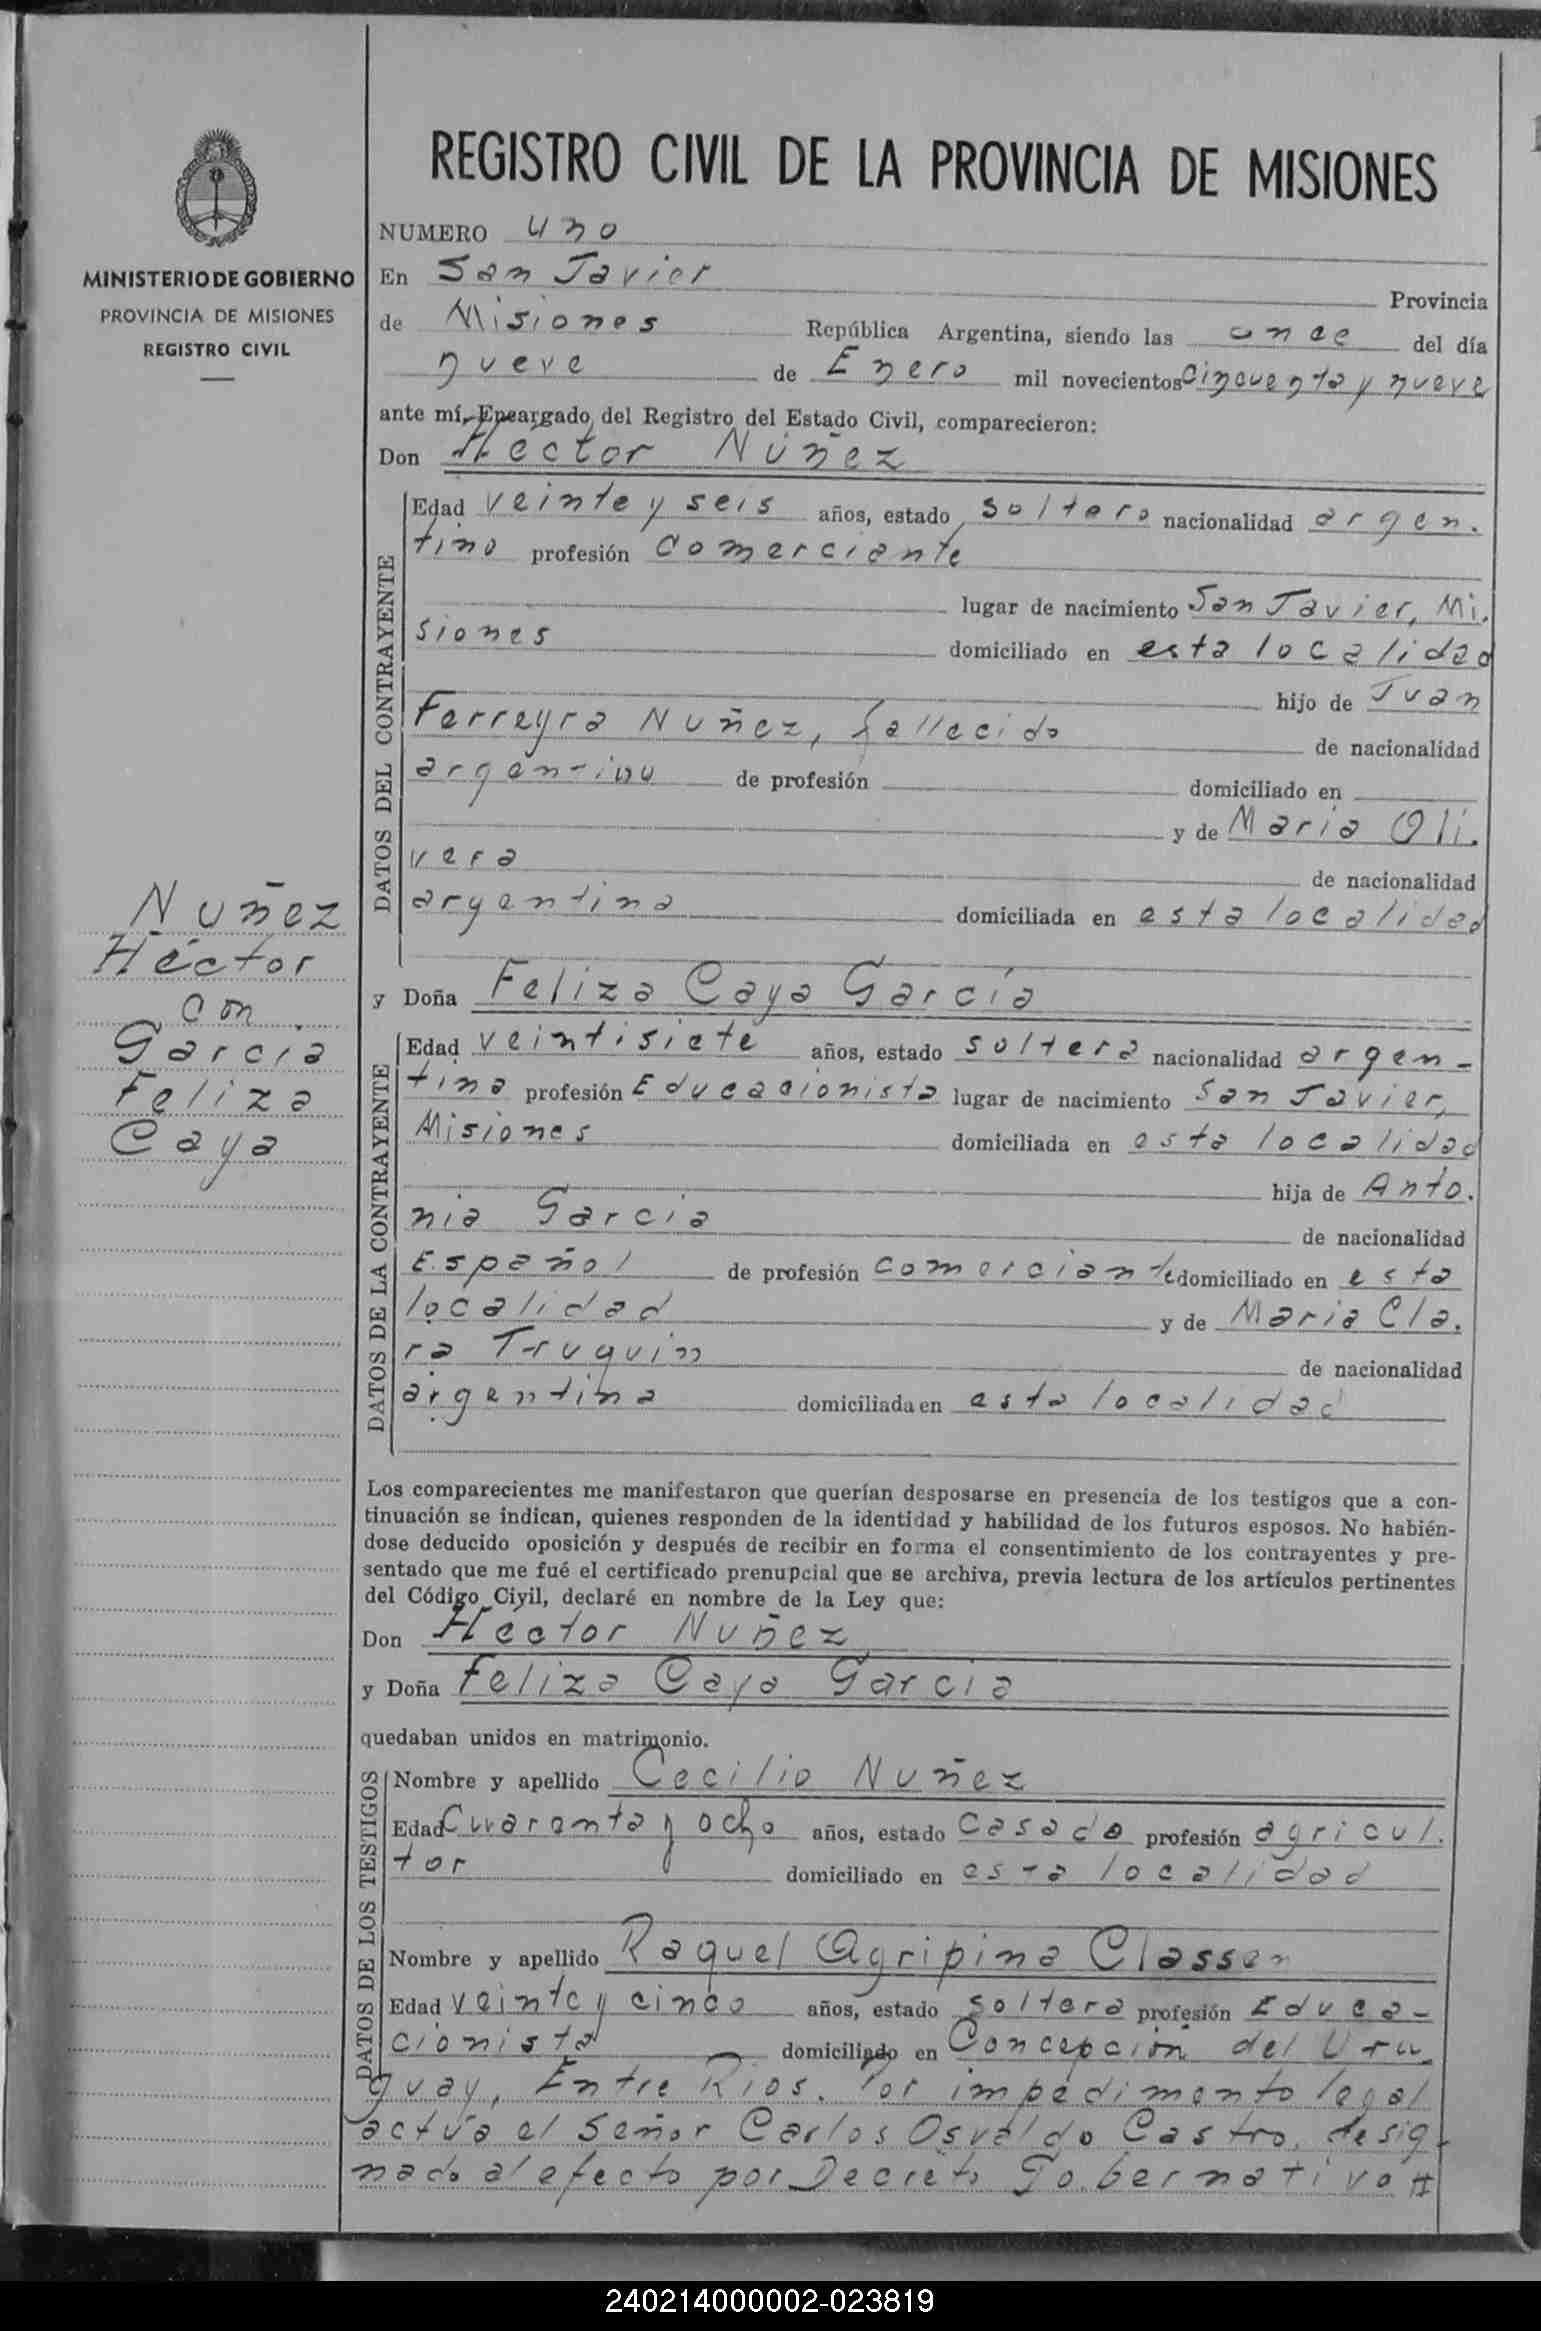 REGISTRO CIVIL DE LA PROVINCIA DE MISIONES
MINISTERIO DE GOBIERNO
PROVINCIA DE MISIONES
REGISTRO CIVIL
NUMERO uno
En San Javier Provincia
de Misiones República Argentina, siendo las once del día
nueve de Enero mil novecientos Cincuenta y nueve
ante mí, Encargado del Registro del Estado Civil, comparecieron:
Don Hector Núñez
DATOS DEL CONTRAYENTE
Edad veinte y seis años, estado soltero nacionalidad argen.
tino profesión Comerciante
lugar de nacimiento San Javier, Mi.
siones domiciliado en esta localidad
hijo de Juan
Ferreyra Nuñez, fallecido de nacionalidad
argentino de profesión domiciliado en
y de Maria Oli.
vera de nacionalidad
argentina domiciliada en esta localidad
Nuñez
Héctor
con
García
Feliza
Caya
y Doña Feliza Caya García
DATOS DE LA CONTRAYENTE
Edad veintisiete años, estado soltera nacionalidad argen-
tina profesión Educacionista lugar de nacimiento San Javier,
Misiones domiciliada en esta localidad
hija de Anto.
nio Garcia de nacionalidad
Español de profesión comerciante domiciliado en esta
localidad y de Maria Cla.
ra Truquin de nacionalidad
argentina domiciliada en esta localidad
Los comparecientes me manifestaron que querían desposarse en presencia de los testigos que a con-
tinuación se indican, quienes responden de la identidad y habilidad de los futuros esposos. No habién-
dose deducido oposición y después de recibir en forma el consentimiento de los contrayentes y pre-
sentado que me fué el certificado prenupcial que se archiva, previa lectura de los artículos pertinentes
del Código Civil, declaré en nombre de la Ley que:
Don Héctor Nuñez
y Doña Feliza Caya Garcia
quedaban unidos en matrimonio.
DATOS DE LOS TESTIGOS
Nombre y apellido Cecilio Nuñez
Edad Cuarenta y ocho años, estado casado profesión agricul.
tor domiciliado en esta localidad
Nombre y apellido Raquel Agripina Classen
Edad veinte y cinco años, estado soltera profesión Educa-
cionista domiciliado en Concepción del Uru.
guay, Entre Rios. Por impedimento legal
actúa el Señor Carlos Osvaldo Castro, desig-
nado al efecto por Decreto Gobernativo #
240214000002-023819